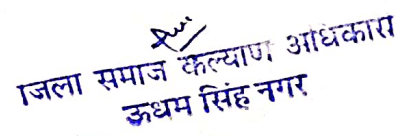 जिला समाज कल्याण अधिकारी
ऊधम सिंह नगर